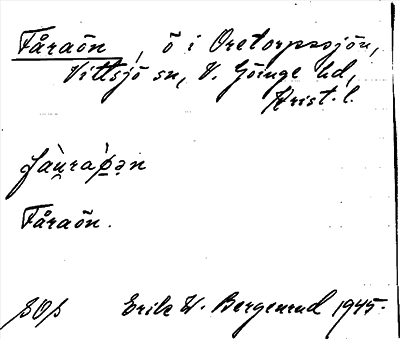 Fåraön, ö i Oretorpssjön,
Vittsjö sn, V. Göinge hd,
Krist. l.
Fåraön.
SOS Erik W. Bergenrud 1945.